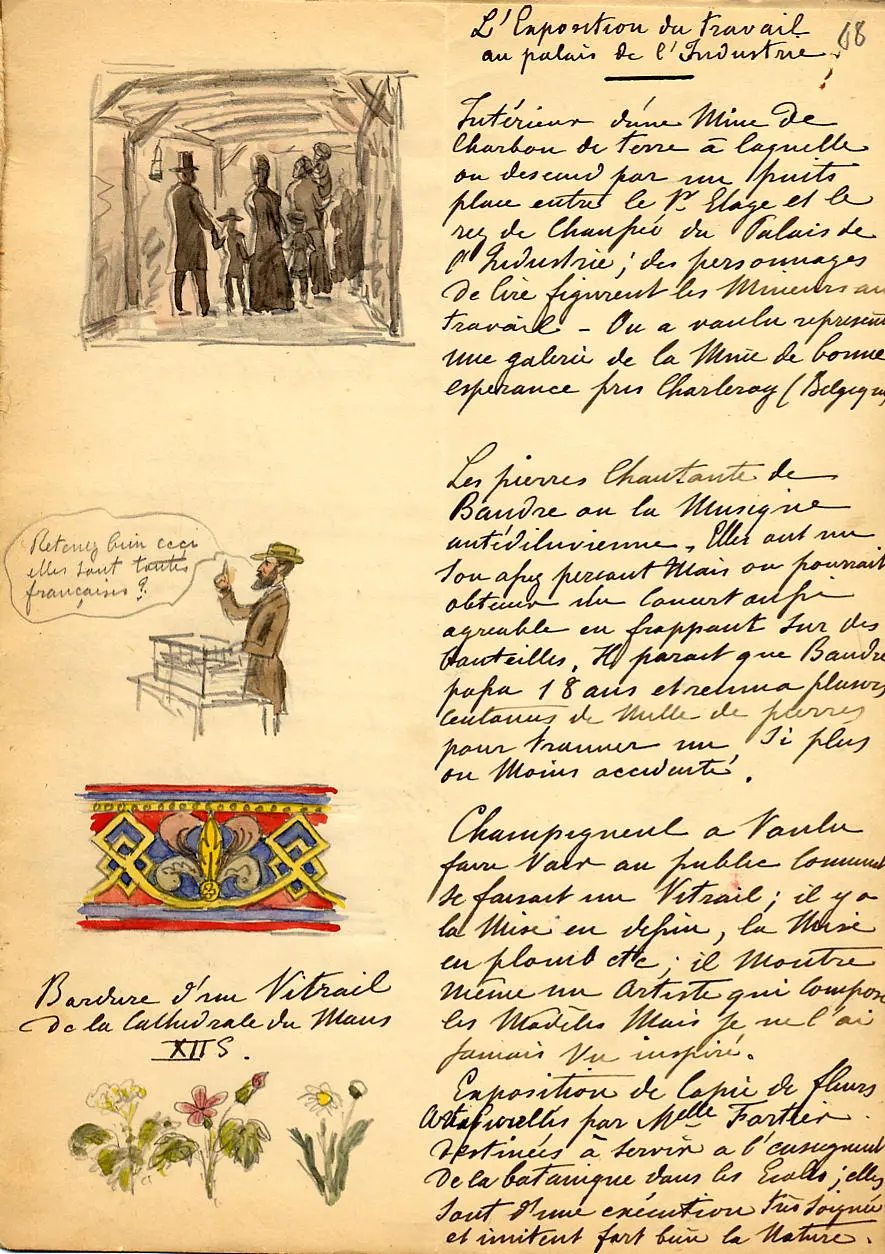 L'Exposition du travail
au palais de l'Industrie
68
Intérieur d'une Mine de
Charbon de terre à laquelle
on descend par un puits
place entre le 1er Etage et le
rez de Chaussée du Palais de
l'Industrie ; des personnages
de cire figurent les Mineurs au
travail - On a voulu represent
une galerie de la Mine de bonne
esperance pres Charleroy (Belgique
Les pierres Chantante de
Baudre ou la Musique
antédiluvienne. Elles ont un
son assez persant Mais on pourrait
obtenir un Concert aussi
agreable en frappant sur des
bouteilles. Il parait que Baudre
passa 18 ans et remua plusieurs
Centaines de Mille de pierres
pour trouver un Si plus
ou Moins accidenté.
Retenez bien ceci
elles sont toutes
françaises !
Champigneul a Voulu
faire Voir au public Comment
se faisait un Vitrail ; il y a
la Mise en dessin, la Mise
en plomb etc ; il Montre
même un Artiste qui Compose
les Modèles Mais je ne l'ai
jamais Vu inspiré.
Bordure d'un Vitrail
de la Cathédrale du Mans
XII S.
Exposition de Copie de fleurs
Artificielles par Melle Fortier
destinées à servir a l'enseignent
de la botanique dans les Ecoles ; elles
sont d'une exécution très soignée
et imitent fort bien la Nature.